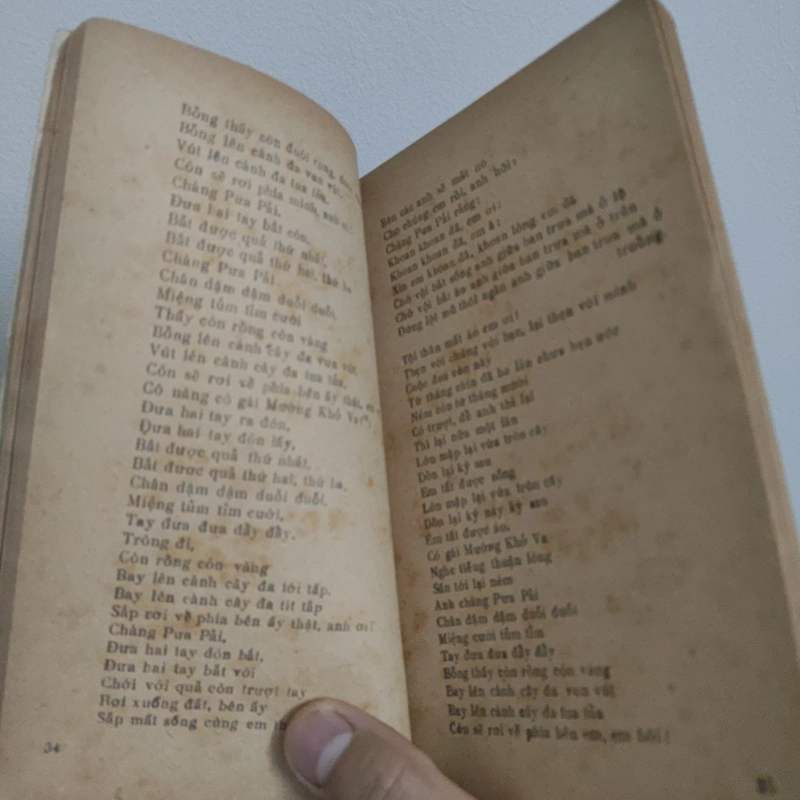 Bỗng thấy còn đuôi rồng,
Bỗng lên cành đa vun vút,
Vút lên cành đa tua tủa.
Còn sẽ rơi phía mình, anh ơi!
Chàng Pưa Pải,
Đưa hai tay bắt còn,
Bắt được quả thứ nhất,
Bắt được quả thứ hai, thứ ba
Chàng Pưa Pải
Chân dậm dậm duỗi duỗi,
Miệng tủm tỉm cười
Thấy còn rồng còn vàng
Bỗng lên cành cây đa vun vút,
Vút lên cành cây đa tua tủa,
Còn sẽ rơi về phía bên ấy thật,
Cô nàng cô gái Mường Khỏ Va
Đưa hai tay ra đón,
Đưa hai tay đón lấy,
Bắt được quả thứ nhất,
Bắt được quả thứ hai, thứ ba,
Chân dậm dậm duỗi duỗi,
Miệng tủm tỉm cười,
Tay đưa đưa đẩy đẩy,
Trông đi,
Còn rồng còn vàng
Bay lên cành cây đa tới tấp,
Bay lên cành cây đa tít tắp
Sắp rơi về phía bên ấy thật, anh ơi!
Chàng Pưa Pải,
Đưa hai tay đón bắt,
Đưa hai tay bắt với
Chới với quả còn trượt tay
Rơi xuống đất, bên ấy
Sắp mất sống cùng em
34
Bên các anh sẽ mất nó,
Cho chúng em rồi, anh hỡi!
Chàng Pưa Pải rằng:
Khoan khoan đã, em ơi!
Khoan khoan đã, em à!
Xin em khoan đã, khoan lòng em đã
Chớ vội bắt sống anh giữa ban trưa mà ở lộ
Chớ vội bắt áo anh giữa ban trưa mà ở trần
Đừng lột mũ thói ngăn anh giữa ban trưa mà ở
trường
Tội thân mất áo em ơi!
Thẹn với chúng với bạn, lại thẹn với mình
Cuộc đua còn này
Từ tháng chín đã ba lần chưa bạn ước
Ném còn từ tháng mười
Có trượt, để anh thi lại
Thi lại nữa một lần
Lớn mập lại vừa tròn cây
Dồn lại kỳ sau
Em tất được sống
Lớn mập lại vừa tròn cây
Dồn lại kỳ này kỳ sau
Em tất được áo.
Cô gái Mường Khỏ Va
Nghe tiếng thuận lòng
Sấn tới lại ném
Anh chàng Pưa Pải
Chân dậm dậm duỗi duỗi
Miệng cười tủm tỉm
Tay đưa đưa đẩy đẩy
Bỗng thấy còn rồng còn vàng
Bay lên cành cây đa vun vút
Bay lên cành cây đa tua tủa
Còn sẽ rơi về phía bên em, em hỡi!